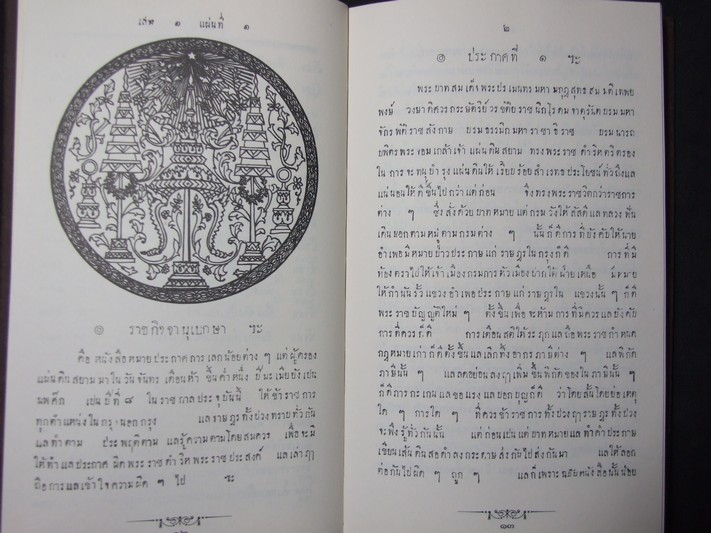 เล่ม ๑ แผ่นที่ ๑
๏ ราชกิจจานุเบกษา ฯะ
คือ หนังสือหมายประกาศการ เลกน้อยต่าง ๆ แต่ผู้ครอง
แผ่นดินสยามมาใน วันจันทร เดือนห้า ขึ้นค่ำหนึ่ง ปีมะเมียยังเปน
นพศก เปนปีที่ ๘ ในราชกาลประจุบันนี้ ให้ข้าราชการ
ทุกตำแหน่งในกรุงนอกกรุง แลราษฎรทั้งปวงทราบทั่วกัน
แลทำตาม ประพฤติตาม แลรู้ความตามโดยสมควร เพื่อจะมิ
ให้ทำแลประกาศ ผิดพระราชดำริห์พระราชประสงค์ แลเล่าฦๅ
ถือการแลเข้าใจความผิด ๆ ไป ฯะ
๒
๏ ประกาศที่ ๑ ฯะ
พระบาทสมเด็จพระปรเมนทรมหามกุฎสุทธสมมติเทพย
พงษ์ วงษาดิศวรกระษัตริย์ วรขัติยราชนิกโรดม จาตุรันตบรมมหา
จักรพัติราชสังกาษ บรมธรรมิกมหาราชาธิราช บรมนารถ
บพิตรพระจอมเกล้าเจ้าแผ่นดินสยาม ทรงพระราชดำริห์ตริตรอง
ใน การ จะทนุบำรุงแผ่นดินให้เรียบร้อยสำเรทประโยชน์ทั่วถึงแล
แน่นอนให้ดีขึ้นไปกว่าแต่ก่อน จึงทรงพระราชวิตกว่าราชการ
ต่าง ๆ ซึ่งสั่งด้วยบาทหมายแต่กรมวังให้สัสดีแลทลวงฟัน
เดินบอกตามหมู่ตามกรมต่าง ๆ นั้นก็ดี การที่บังคับให้นาย
อำเพอมีหมายบ่าวประกาษแก่ราษฎรในกรุงก็ดี การที่มี
ท้องตราไปให้เจ้าเมืองกรมการหัวเมืองปากใต้ฝ่ายเหนือ มีหมาย
ให้กำนันรั้วแขวงอำเพอประกาษแก่ราษฎรใน แขวงนั้น ๆ ก็ดี
พระราชบัญญัติใหม่ ๆ ตั้งขึ้นเพื่อจะห้ามการที่มิควร แลบังคับ
การที่ควรก็ดี การเตือนสติให้ระฦกแลถือพระราชกำหนด
กฎหมายเก่าก็ดี ตั้งขึ้นแลเลิกทิ้งอากรภาษีต่าง ๆ แลพิกัด
ภาษีนั้น ๆ แลลดหย่อนลงฤๅเพิ่มขึ้นพิกัดของในภาษีนั้น ๆ
ก็ดี การกะเกนแลขอแรงแลบอกบุญก็ดี ว่าโดยสั้นโดยย่อเหตุ
ใด ๆ การใด ๆ ที่ควรข้าราชการทั้งปวงฤๅราษฎรทั้งปวง
จะพึงรู้ทั่วกันนั้น แต่ก่อนเปนแต่บาทหมายแลทำคำประกาษ
เขียนเส้นดินสอดำลงกระดาษส่งกันไปส่งกันมา แลให้ลอก
ต่อกันไปผิด ๆ ถูก ๆ แลก็เพราะฉบับหนังสือนั้นน้อย